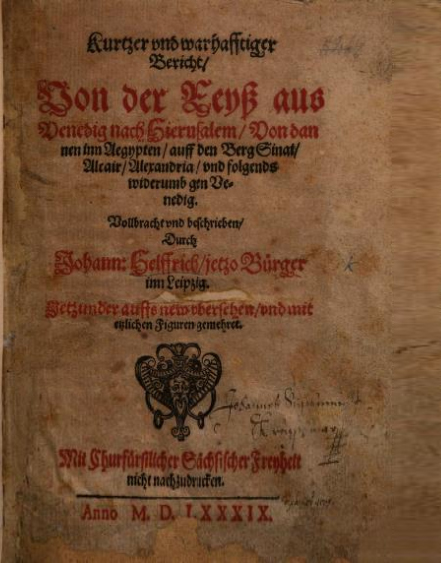 Kurtzer vnd warhafftiger
Bericht/
Von der Reyß aus
Venedig nach Hierusalem/ Von dan
nen inn Aegypten/ auff den Berg Sinai/
Alcair/ Alexandria/ vnd folgends
widerumb gen Ve-
nedig.
Vollbracht vnd beschrieben/
Durch
Johann: Helffrich/ jetzo Bürger
inn Leipzig.
Jetzunder auffs new vbersehen/ vnd mit
etzlichen Figuren gemehret.
Mit Churfürstlicher Sächsischer Freyheit
nicht nachzudrucken.
Anno M. D. LXXXIX.